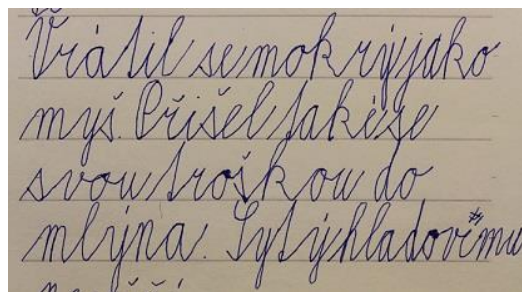 Vrátil se mokrý jako
myš. Přišel také se
svou troškou do
mlýna. Sytý hladovému